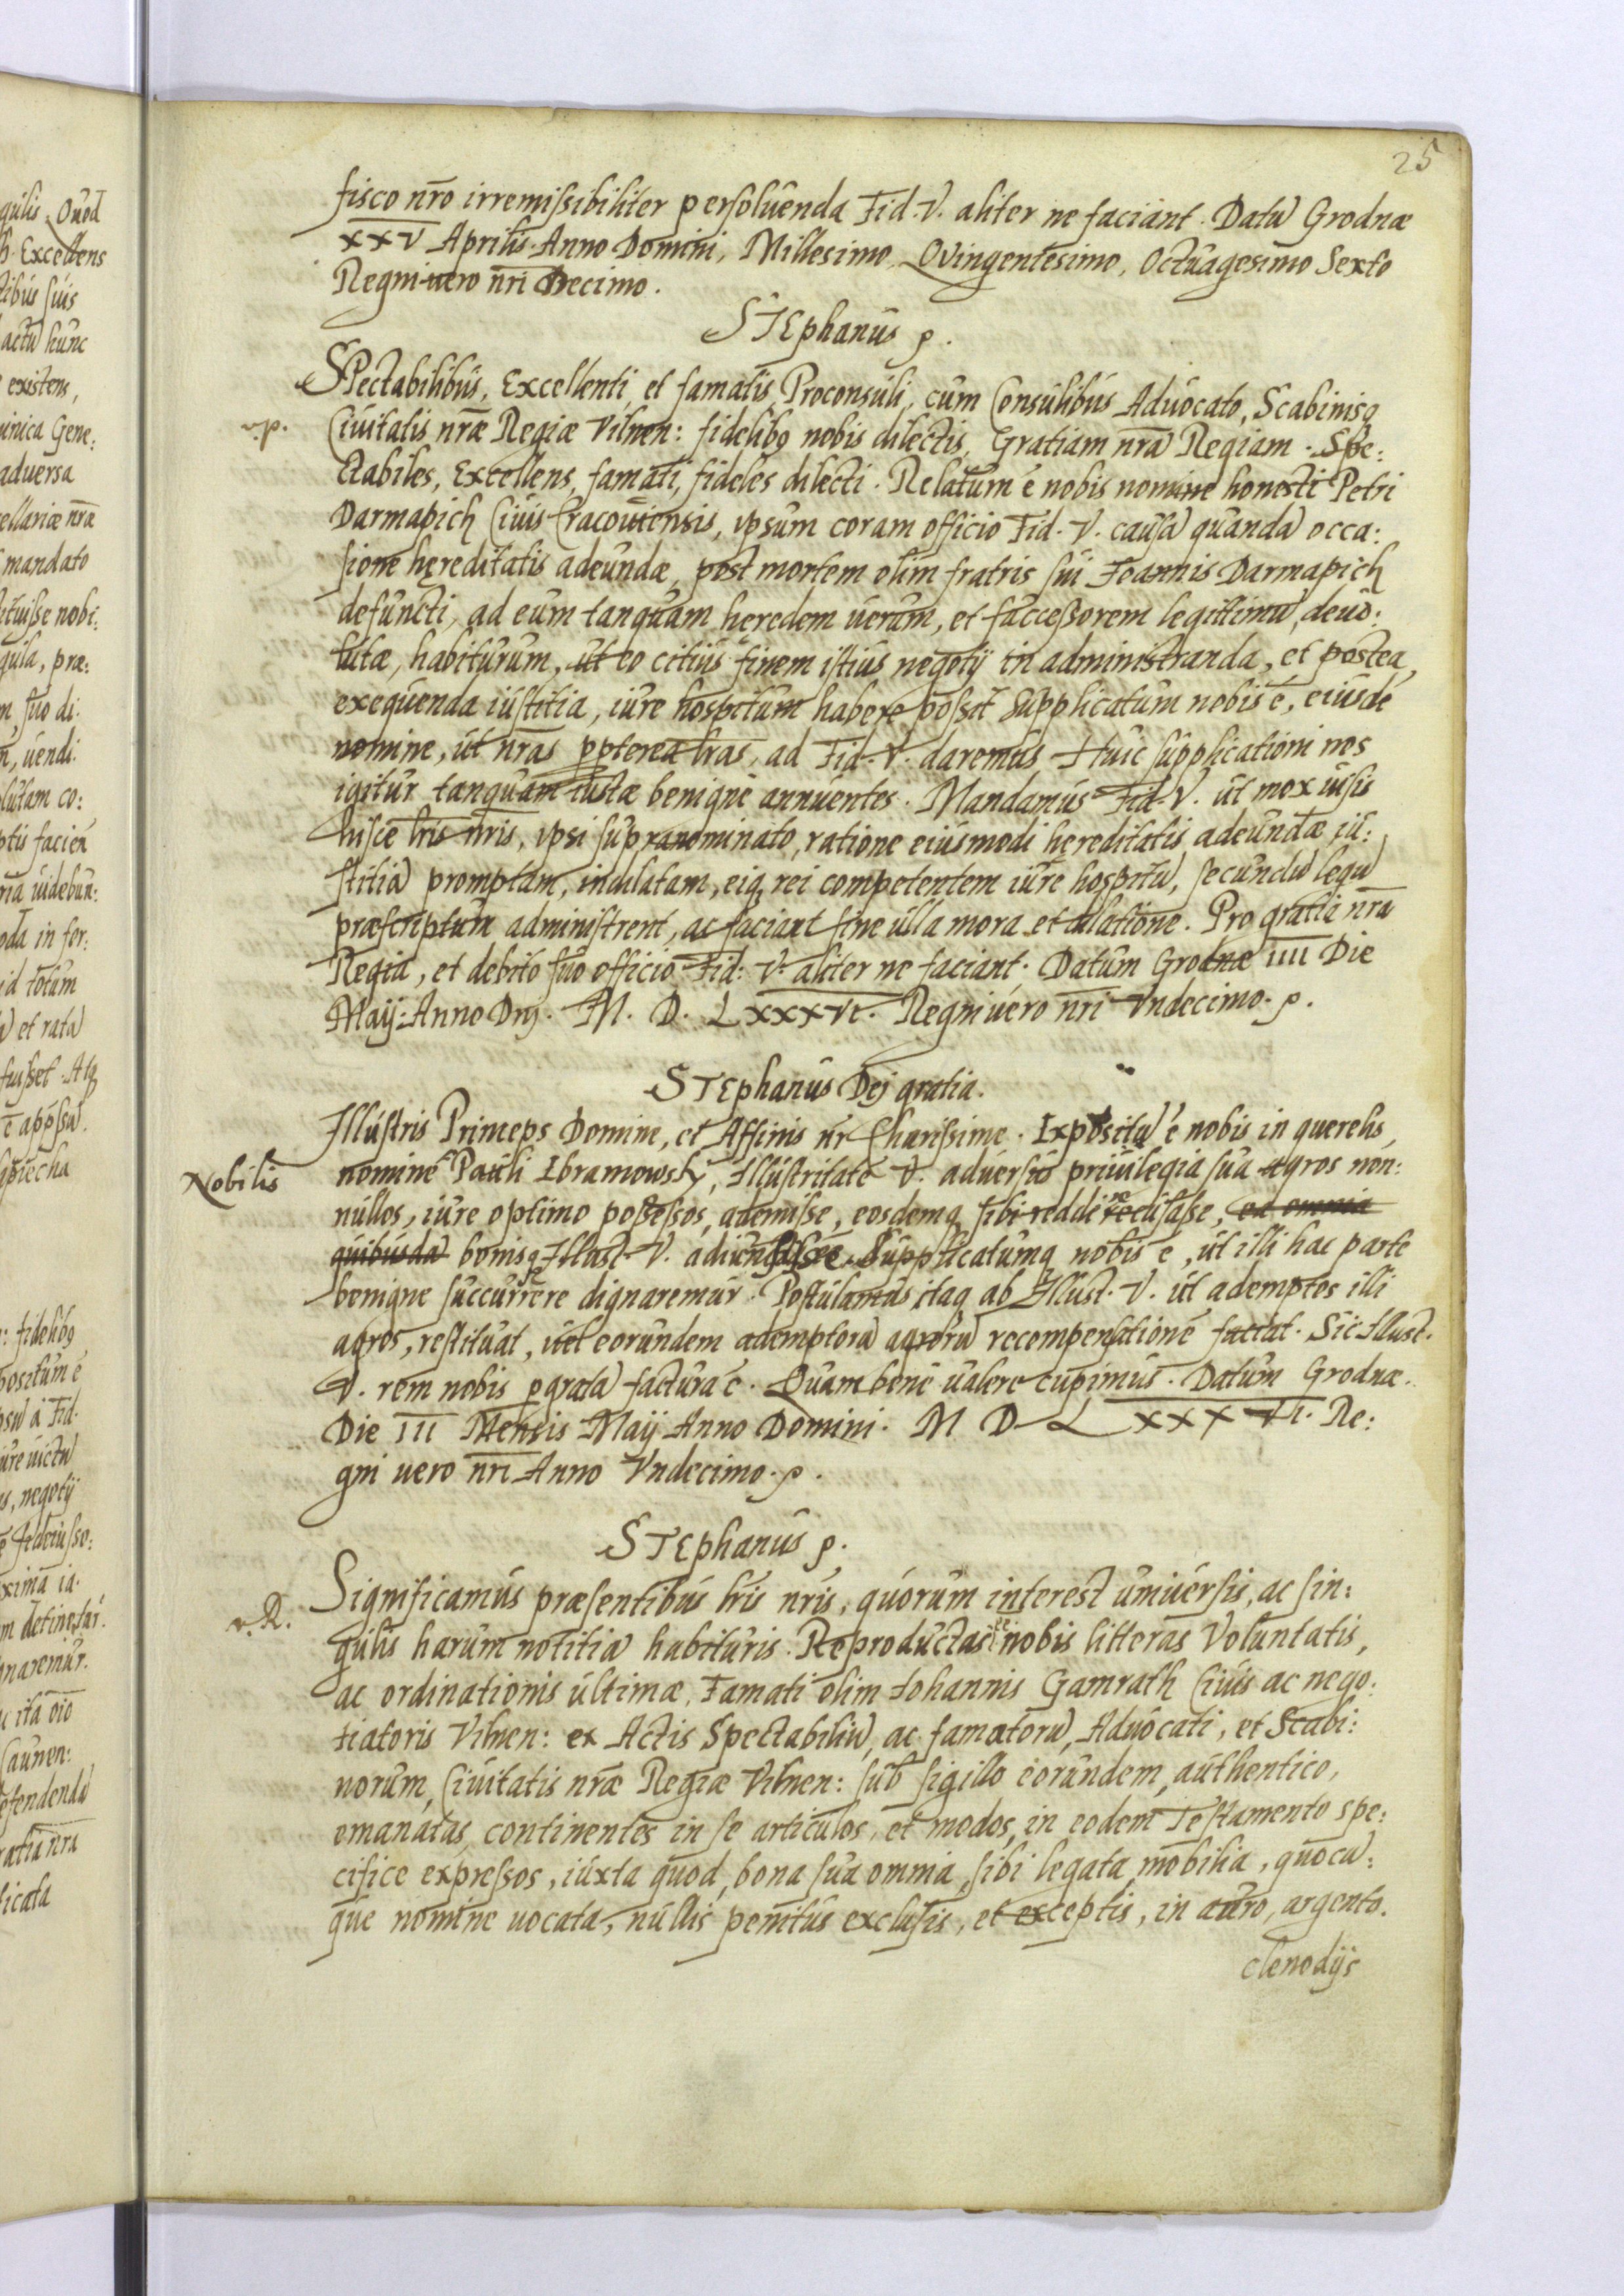 25
fisco nr̄o irremissibiliter persoluenda Fid. V. aliter ne faciant. Datū Grodnæ
XXV Aprilis. Anno Domini, Millesimo, Qvingentesimo, Octuagesimo Sexto
Regni uero nr̄i Decimo.
STEphanus p.
SPectabilibus, Excellenti et famatis Proconsuli, cum Consulibus Aduocato, Scabinisq
Ciuitatis nr̄æ Regiæ Vilnen: fidelibꝯ nobis dilectis, Gratiam nr̄ā Regiam. Spe:
ctabiles, Excellens, famati, fideles dilecti. Relatum ē nobis nomine honesti Petri
Darmapich Ciuis Cracouiensis, ypsum coram officio Fid. V. causā quandā occa:
sione hęreditatis adeundæ, post mortem olim fratris sui Joannis Darmapich
defuncti, ad eum tanquam hęredem uerum, et successorem legittimū, deuo:
lutæ, habiturum, ut eo citius finem istius negotij in administranda, et postea
exequenda iustitia, iure hospitum habere possit Supplicatum nobis ē, eiusdē
nomine, ut nr̄as ppterea lr̄as, ad Fid. V. daremus Huic supplicationi nos
igitur tanquam iustæ benigne annuentes. Mandamus Fid. V. ut mox uisis
hisce lr̄is nr̄is, ypsi supranominato, ratione eiusmodi hereditatis adeundæ iu:
stitiā promptam, indilatam, eiq rei competentem iure hospitū, secundū legū
præscriptum administrent, ac faciant sine ulla mora et dilatione. Pro gratia nr̄a
Regia, et debito suo officio Fid: V. aliter ne faciant. Datum Grodnæ IIII Die
Maij. Anno Dnj. M. D. LXXXVI. Regni uero nr̄i Vndecimo. p.
STEphanus Dej gratia.
Illustris Princeps Domine, et Affinis nr̄ Charissime. Expositū ē nobis in querelis,
Nobilis
nomine Pauli Ibramowsky, Illustritatē V. aduersus priuilegia sua agros non:
nullos, iure optimo possessos, ademisse, eosdemq sibi reddi recusasse, ea omnia
quibusdā bonisq Illust. V. adiunxisse. Supplicatumq nobis ē, ut illi hac parte
benigne succurrere dignaremur. Postulamus itaq ab Illust. V. ut ademptos illi
agros, restituat, uel eorundem ademptorū agrorū recompensationē faciat. Sic Illust.
V. rem nobis pgratā facturā ē. Quam bene ualere cupimus. Datum Grodnæ.
Die III Mensis Maij Anno Domini. M D L XXXVI. Re:
gni uero nr̄i Anno Vndecimo. p.
STEphanus p.
Significamus præsentibus lr̄is nr̄is, quorum interest uniuersis, ac sin:
gulis harum notitiā habituris. Reproductas nobis litteras Voluntatis,
ac ordinationis ultimæ, Famati olim Johannis Gamrath Ciuis ac nego:
tiatoris Vilnen: ex Actis Spectabiliū, ac famatorū, Aduocati, et Scabi:
norum, Ciuitatis nr̄æ Regiæ Vilnen: sub sigillo eorundem, authentico,
emanatas, continentes in se articulos, et modos, in eodem Testamento spe:
cifice expressos, iuxta quod, bona sua omnia, sibi legata, mobilia, quocū:
que nomine uocata, nullis penitus exclusis, et exceptis, in auro, argento.
clenodijs